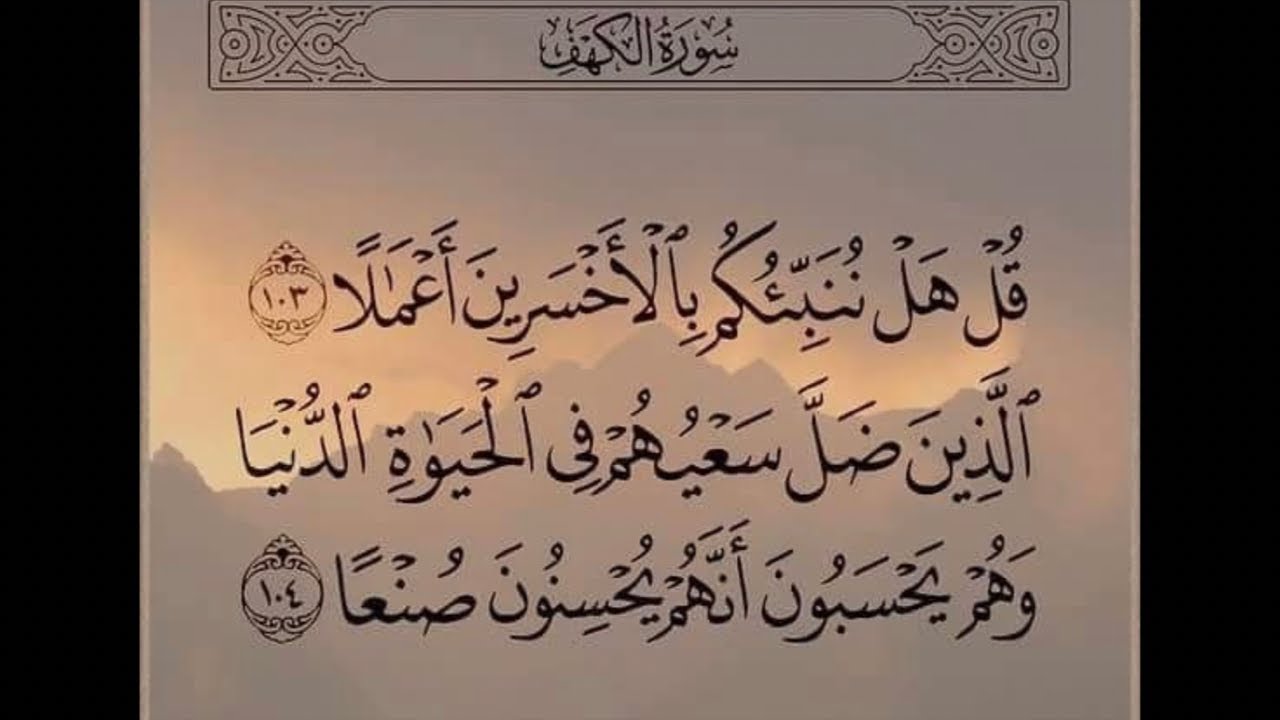 سُورَةُ الكَهْفِ
قُلْ هَلْ نُنَبِّئُكُم بِٱلْأَخْسَرِينَ أَعْمَٰلًا ١٠٣
ٱلَّذِينَ ضَلَّ سَعْيُهُمْ فِى ٱلْحَيَوٰةِ ٱلدُّنْيَا
وَهُمْ يَحْسَبُونَ أَنَّهُمْ يُحْسِنُونَ صُنْعًا ١٠٤